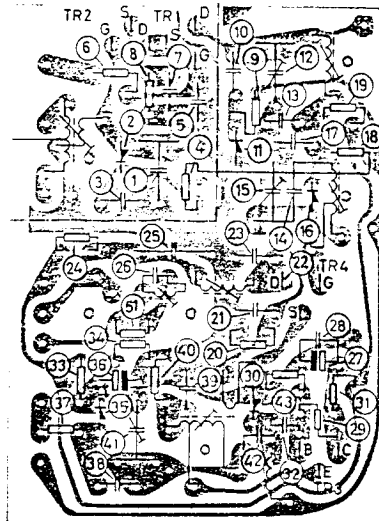 TR2 S TR1 D
G D S
6 8 7 G 10 9 12
19
2 5 13
4 11 17 18
3 1 15
23 14 16
25
24 26 22 TR4
D G
51 21 S
34 28
33 36 40 20 27
37 39 30
35 43 31
41 29
B C
38 42 32 E
TR3